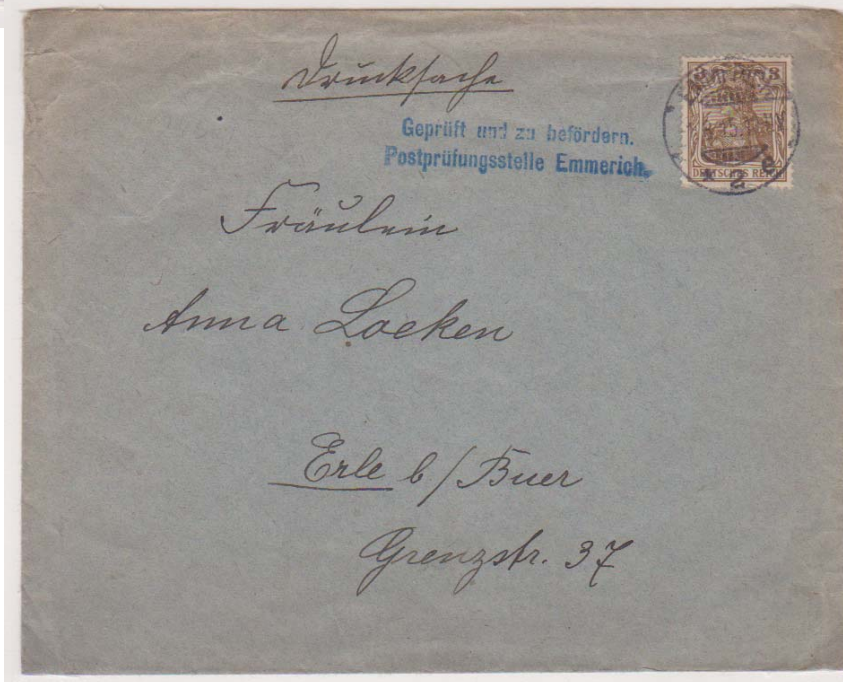 Drucksache
Geprüft und zu befördern.
Postprüfungsstelle Emmerich.
3 3
DEUTSCHES REICH
Fräulein
Anna Loeken
Erle b/Buer
Grenzstr. 37